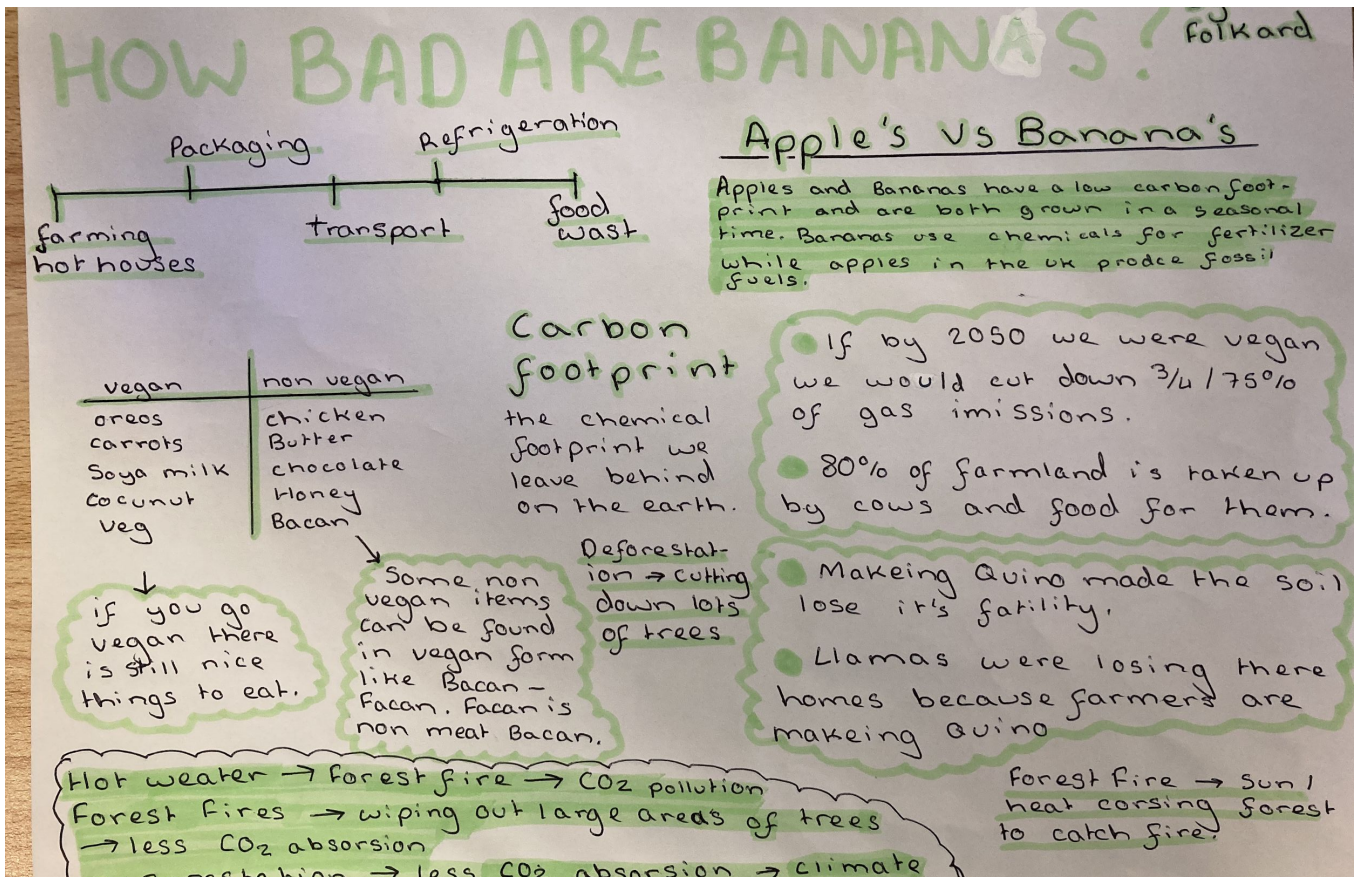 HOW BAD ARE BANANAS?
Folkard
Packaging
Refrigeration
farming
hot houses
transport
food
wast
Apple's Vs Banana's
Apples and Bananas have a low carbon foot-
print and are both grown in a seasonal
time. Bananas use chemicals for fertilizer
while apples in the UK prodce fossil
fuels.
vegan
oreos
carrots
Soya milk
Cocunut
veg
non vegan
chicken
Butter
chocolate
Honey
Bacan
if you go
vegan there
is still nice
things to eat.
Some non
vegan items
can be found
in vegan form
like Bacan –
Facan. Facan is
non meat Bacan.
Carbon
footprint
the chemical
footprint we
leave behind
on the earth.
Deforestat-
ion → cutting
down lots
of trees
If by 2050 we were vegan
we would cut down 3/4 / 75%
of gas imissions.
80% of farmland is taken up
by cows and food for them.
Makeing Quino made the soil
lose it's fatility.
Llamas were losing there
homes because farmers are
makeing Quino
Hot weater → Forest fire → CO2 pollution
Forest Fires → wiping out large areas of trees
→ less CO2 absorsion
→ less CO2 absorsion → climate
Forest Fire → Sun /
heat corsing forest
to catch fire.